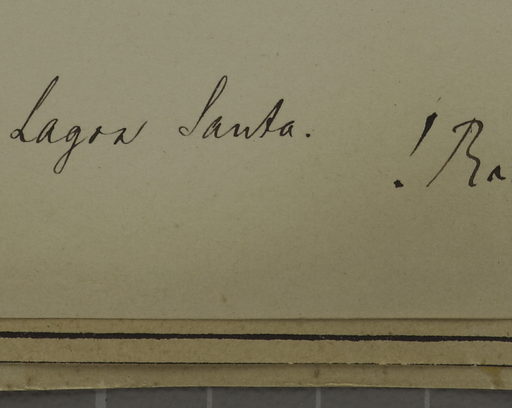 Lagoa Santa.
! Ra